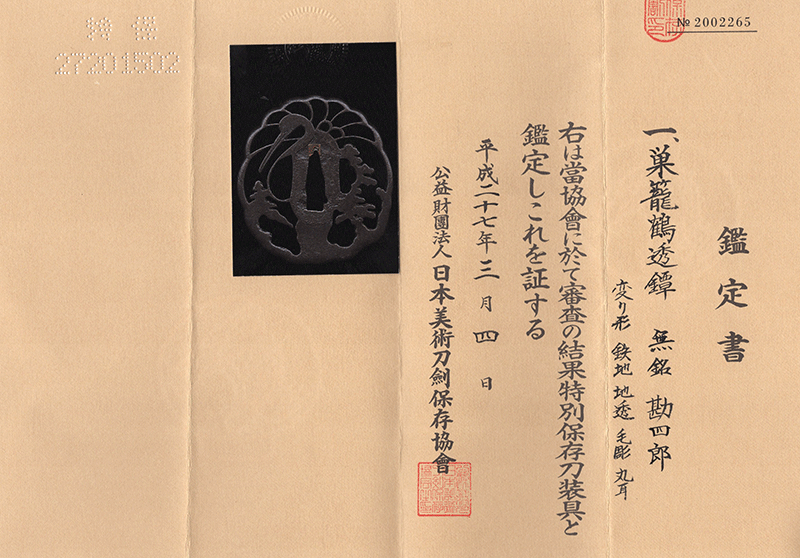 № 2002265
鑑定書
一、巣籠鶴透鐔 無銘 勘四郎
変り形 鉄地 地透 毛彫 丸耳
右は當協會に於て審査の結果特別保存刀装具と
鑑定しこれを証する
平成二十七年三月四日
公益財團法人 日本美術刀劍保存協會
特保
27201502